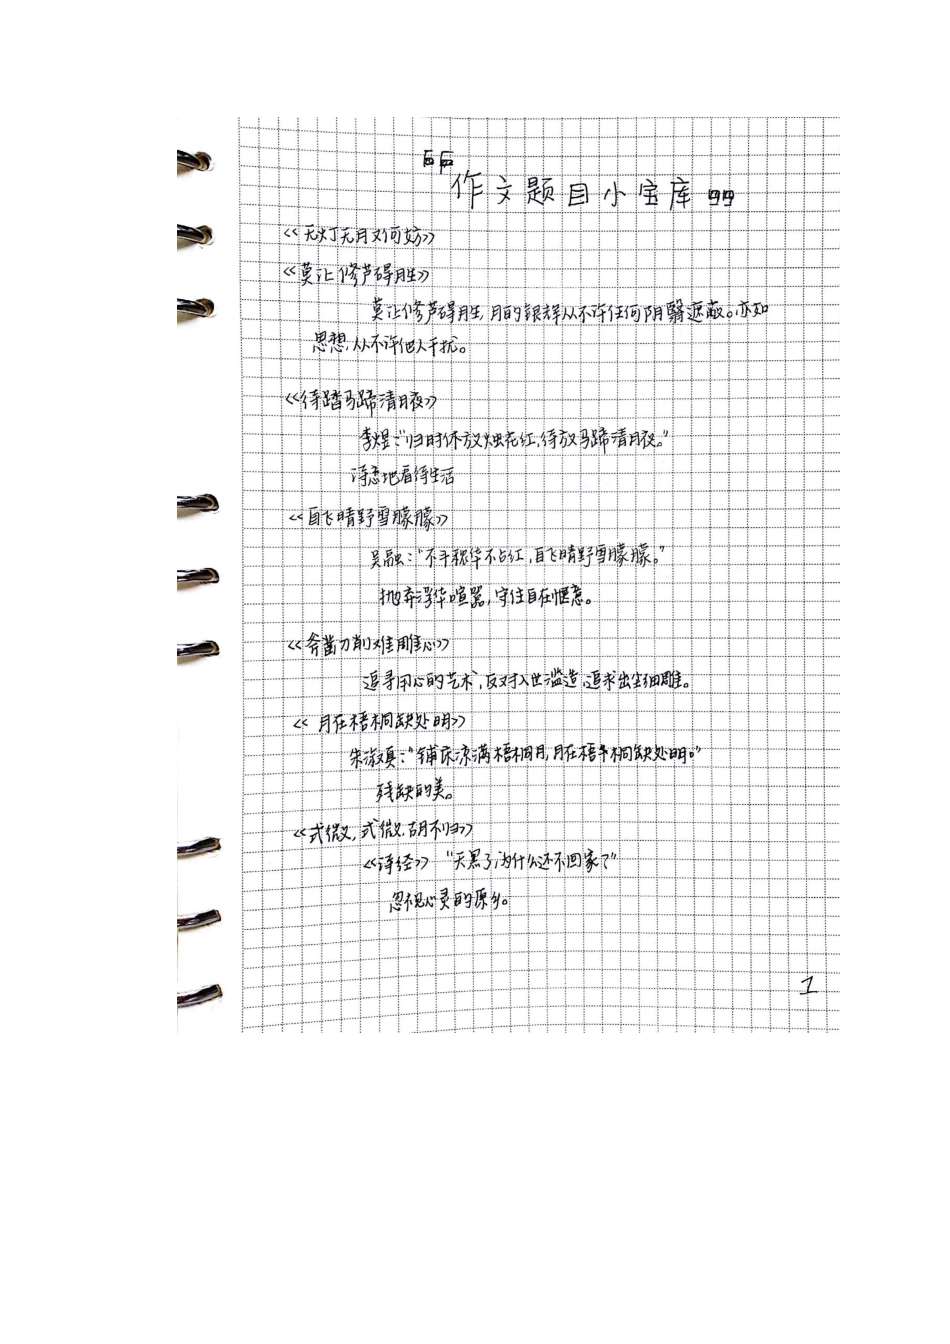 作文题目小宝库
<<无灯无月又何妨>>
<<莫让修芦碍月生>>
莫让修芦碍月生,月的银辉从不许任何阴翳遮蔽。亦如
思想,从不许他人干扰。
<<待踏马蹄清月夜>>
李煜:"归时休放烛花红,待放马蹄清月夜。"
诗意地看待生活
<<自飞晴野雪朦朦>>
吴融:"不争秾华不占红,自飞晴野雪朦朦。"
抛弃浮华喧嚣,守住自在惬意。
<<斧凿刀削难雕心>>
追寻用心的艺术,反对入世滥造,追求出尘细雕。
<<月在梧桐缺处明>>
朱淑真:"铺床凉满梧桐月,月在梧桐缺处明。"
残缺的美。
<<式微,式微,胡不归>>
<<诗经>> "天黑了,为什么还不回家?"
忽视心灵的原乡。
1